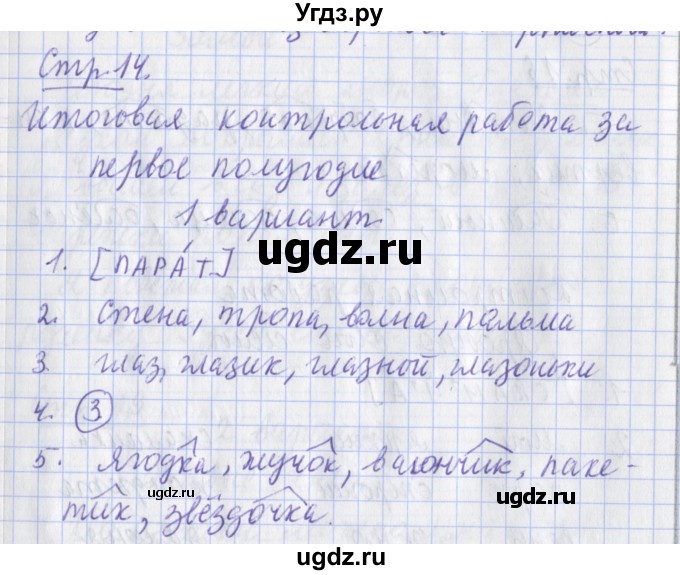 Угдз.ру
Стр. 14.
Итоговая контрольная работа за
первое полугодие
1 вариант
1. [ПАРА́Т]
2. Стена, тропа, волна, пальма
3. глаз, глазик, глазной, глазоньки
4. 3
5. Ягодка, жучок, вагончик, паке-
тик, звёздочка.
ugdz.ru
ugdz.ru
ugdz.ru
ugdz.ru
ugdz.ru
ugdz.ru
ugdz.ru